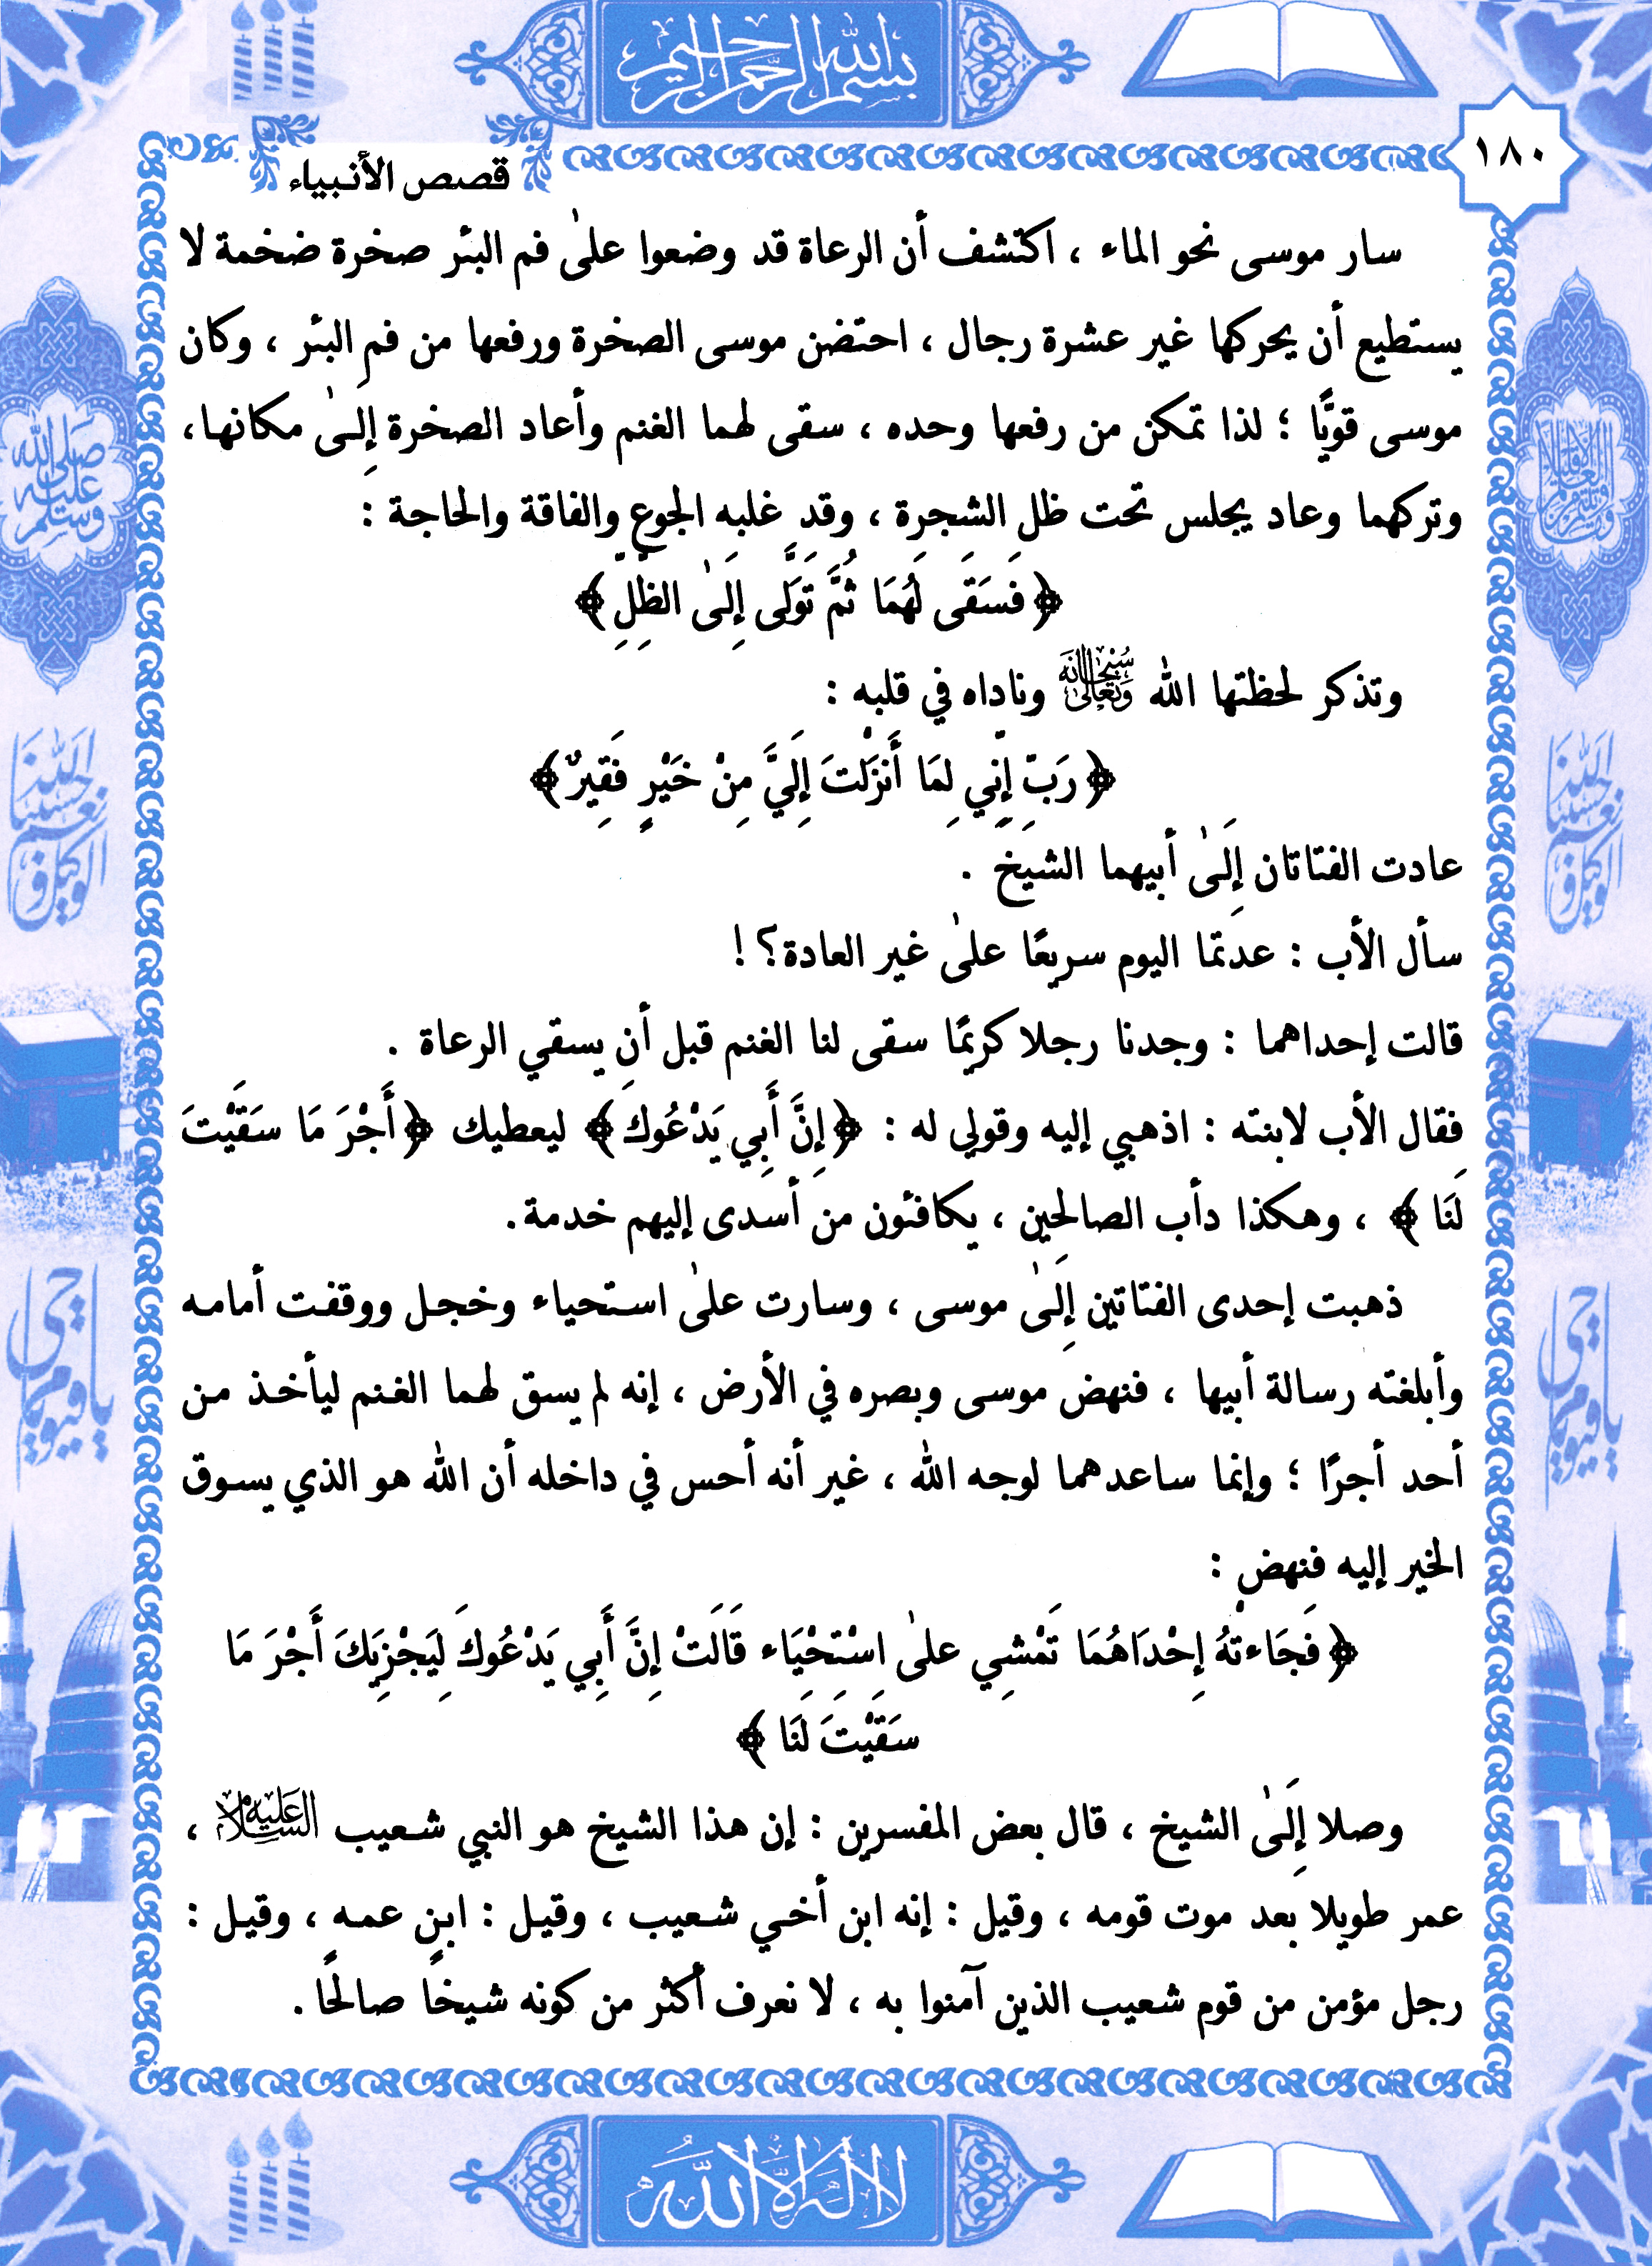 بسم الله الرحمن الرحيم
١٨٠
قصص الأنبياء
سار موسى نحو الماء ، اكتشف أن الرعاة قد وضعوا علىٰ فم البئر صخرة ضخمة لا
يستطيع أن يحركها غير عشرة رجال ، احتضن موسى الصخرة ورفعها من فم البئر ، وكان
موسى قويًّا ؛ لذا تمكن من رفعها وحده ، سقى لهما الغنم وأعاد الصخرة إِلىٰ مكانها،
وتركهما وعاد يجلس تحت ظل الشجرة ، وقد غلبه الجوع والفاقة والحاجة :
﴿فَسَقَى لَهُمَا ثُمَّ تَوَلَّى إِلَىٰ الظِّلِّ﴾
وتذكر لحظتها الله سُبْحَانَهُ وَتَعَالَىٰ وناداه في قلبه :
﴿رَبِّ إِنِّي لِمَا أَنزَلْتَ إِلَيَّ مِنْ خَيْرٍ فَقِيرٌ﴾
عادت الفتاتان إِلَىٰ أبيهما الشيخ .
سأل الأب : عدتما اليوم سريعًا علىٰ غير العادة؟ !
قالت إحداهما : وجدنا رجلا كريمًا سقى لنا الغنم قبل أن يسقي الرعاة .
فقال الأب لابنته : اذهبي إليه وقولي له : ﴿إِنَّ أَبِي يَدْعُوكَ﴾ ليعطيك ﴿أَجْرَ مَا سَقَيْتَ
لَنَا ﴾ ، وهكذا دأب الصالحين ، يكافئون من أسدى إليهم خدمة.
ذهبت إحدى الفتاتين إِلَىٰ موسى ، وسارت علىٰ استحياء وخجل ووقفت أمامه
وأبلغته رسالة أبيها ، فنهض موسى وبصره في الأرض ، إنه لم يسق لهما الغنم ليأخذ من
أحد أجرًا ؛ وإنما ساعدهما لوجه الله ، غير أنه أحس في داخله أن الله هو الذي يسوق
الخير إليه فنهض :
﴿فَجَاءتْهُ إِحْدَاهُمَا تَمْشِي علىٰ اسْتِحْيَاء قَالَتْ إِنَّ أَبِي يَدْعُوكَ لِيَجْزِيَكَ أَجْرَ مَا
سَقَيْتَ لَنَا ﴾
وصلا إِلَىٰ الشيخ ، قال بعض المفسرين : إن هذا الشيخ هو النبي شعيب عليه السلام ،
عمر طويلا بعد موت قومه ، وقيل : إنه ابن أخي شعيب ، وقيل : ابن عمه ، وقيل :
رجل مؤمن من قوم شعيب الذين آمنوا به ، لا نعرف أكثر من كونه شيخًا صالحًا .
صلى الله عليه وسلم
حسبنا الله ونعم الوكيل
حسبنا الله ونعم الوكيل
يا حي يا قيوم
يا حي يا قيوم
لا إله إلا الله